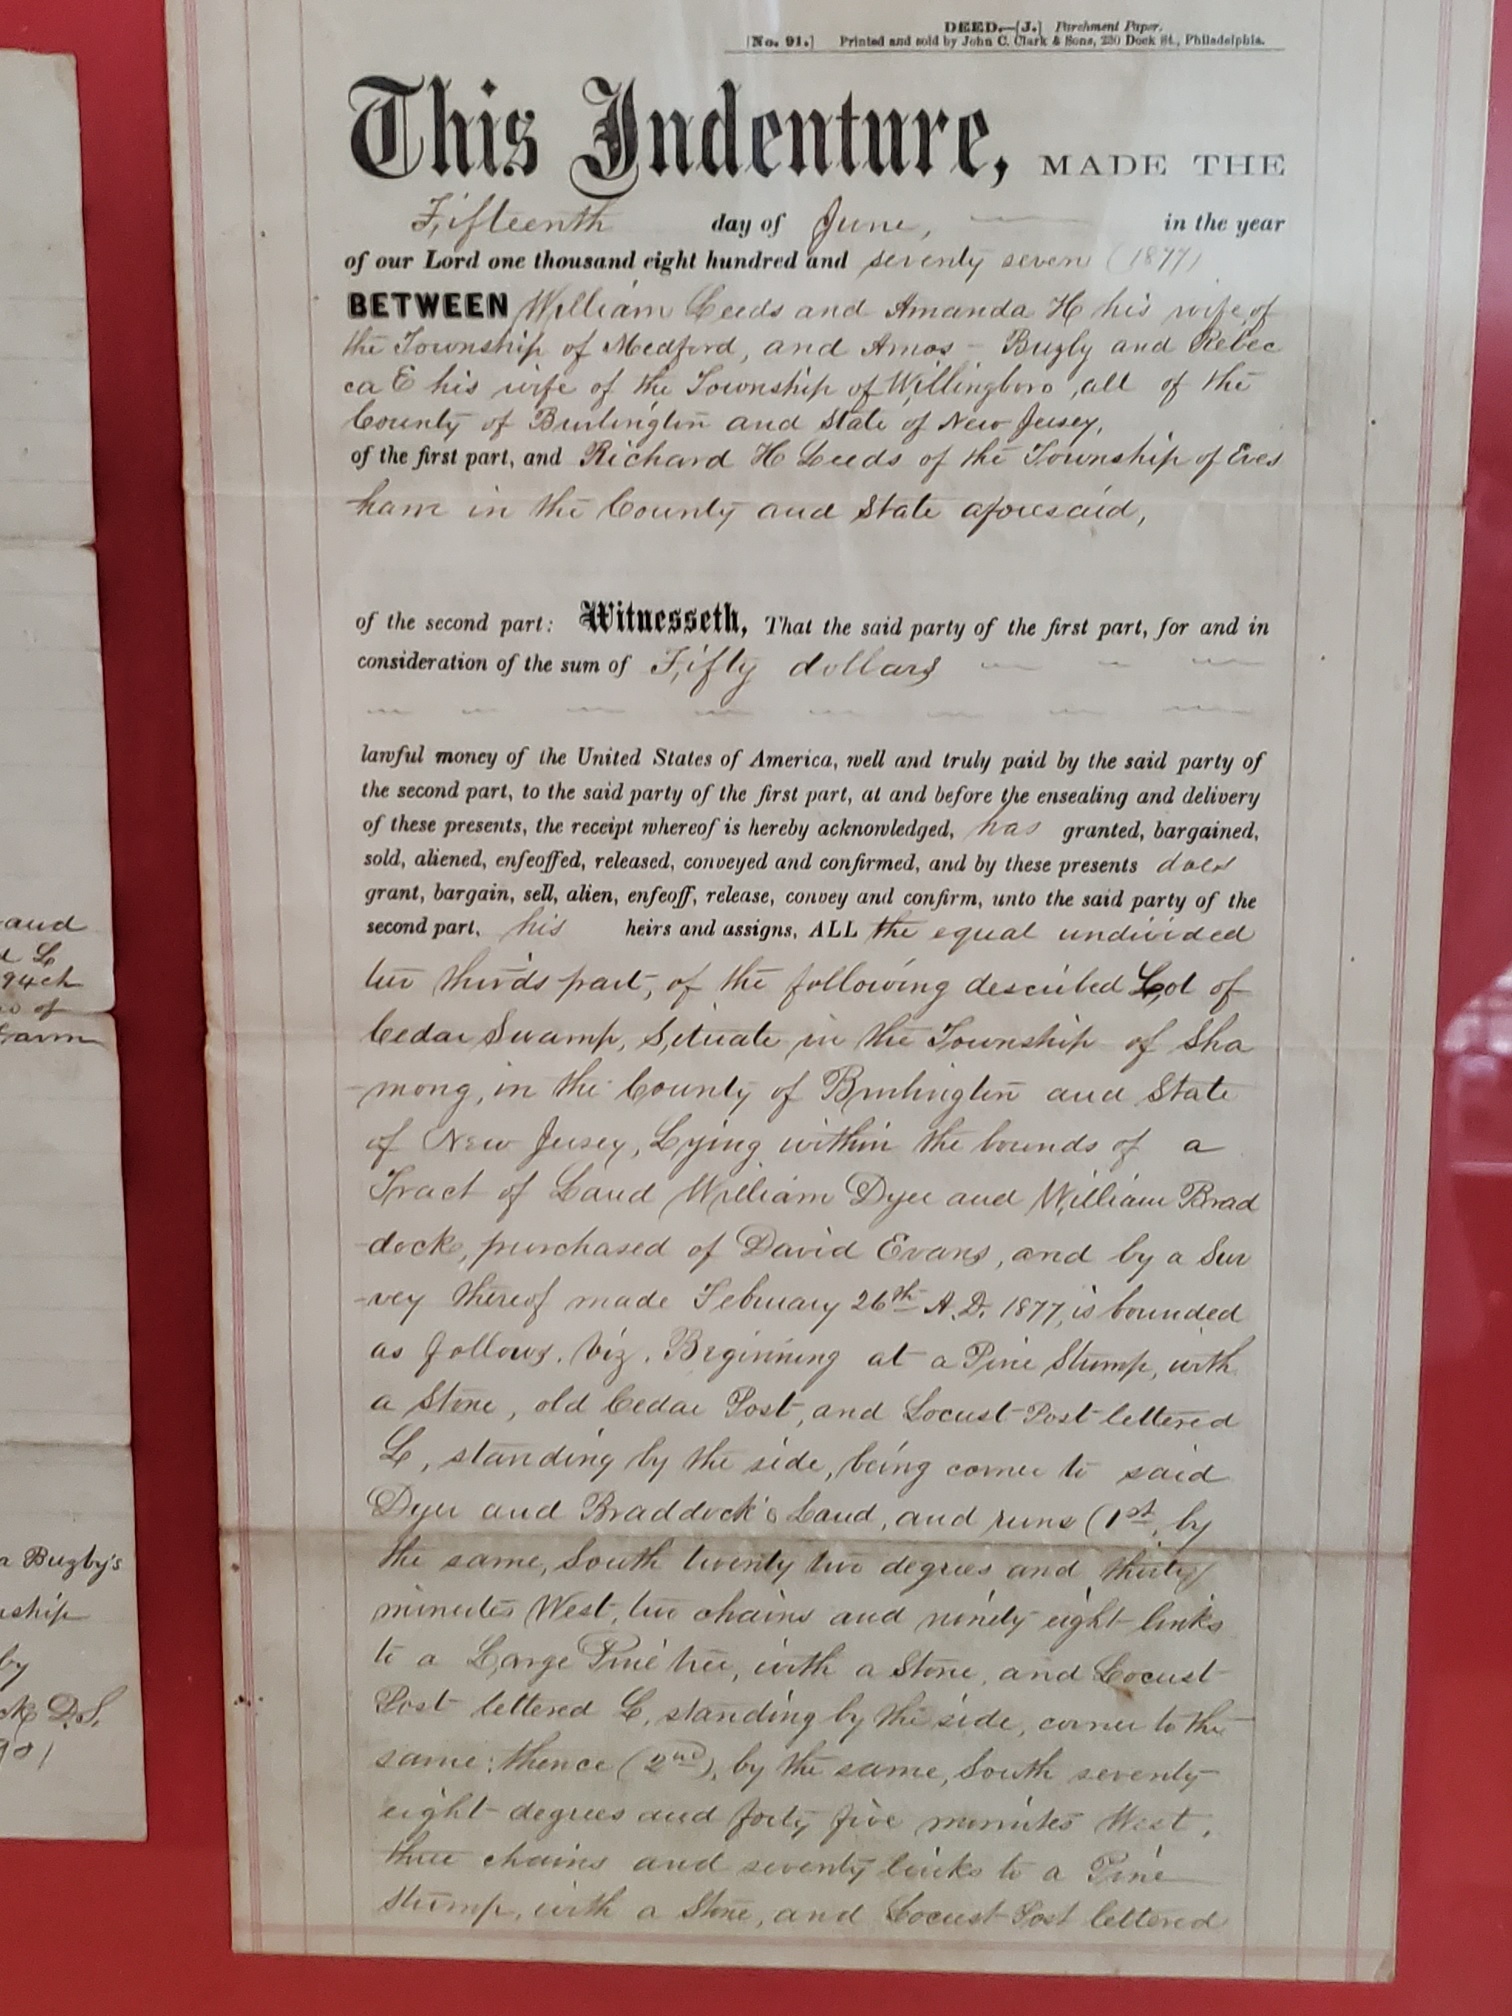 DEED.—[J.] Parchment Paper.
[No. 91.] Printed and sold by John C. Clark & Sons, 230 Dock St., Philadelphia.
This Indenture, MADE THE
Fifteenth day of June, in the year
of our Lord one thousand eight hundred and seventy seven (1877)
BETWEEN William Leeds and Amanda H his wife, of
the Township of Medford, and Amos - Bugby and Rebec
ca E his wife of the Township of Willingboro, all of the
County of Burlington and State of New Jersey,
of the first part, and Richard H Leeds of the Township of Eves
ham in the County and State aforesaid,
of the second part: Witnesseth, That the said party of the first part, for and in
consideration of the sum of Fifty dollars
lawful money of the United States of America, well and truly paid by the said party of
the second part, to the said party of the first part, at and before the ensealing and delivery
of these presents, the receipt whereof is hereby acknowledged, has granted, bargained,
sold, aliened, enfeoffed, released, conveyed and confirmed, and by these presents does
grant, bargain, sell, alien, enfeoff, release, convey and confirm, unto the said party of the
second part, his heirs and assigns, ALL the equal undivided
two thirds part, of the following described Lot of
Cedar Swamp, Situate in the Township of Sha
-mong, in the County of Burlington and State
of New Jersey, Lying within the bounds of a
Tract of Land William Dyer and William Brad
-dock, purchased of David Evans, and by a Sur
-vey thereof made February 26th A.D. 1877, is bounded
as follows. viz. Beginning at a Pine Stump, with
a Stone, old Cedar Post, and Locust Post lettered
L, standing by the side, being corner to said
Dyer and Braddock's Land, and runs (1st, by
the same, South twenty two degrees and thirty
minutes West, two chains and ninety eight links
to a Large Pine tree, with a Stone, and Locust
Post lettered L, standing by the side, corner to the
same; thence (2nd), by the same, South seventy
eight degrees and forty five minutes West,
three chains and seventy links to a Pine
Stump, with a Stone, and Locust Post lettered
and
L
94ch
of
Bugby's
by
D.S.